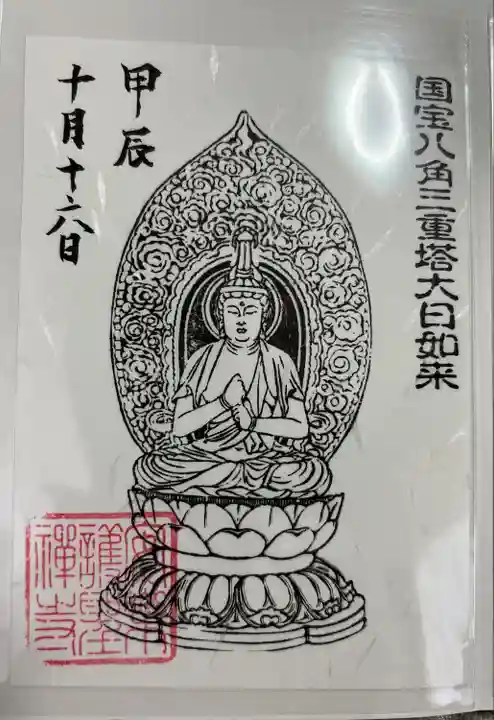 国宝八角三重塔大日如来
甲辰
十月十六日
安樂
護聖
禪寺